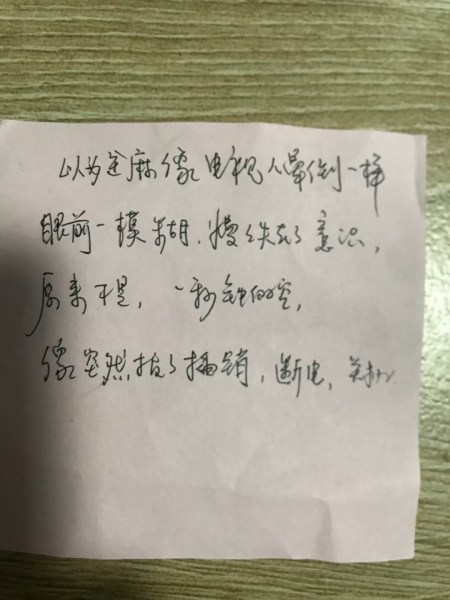 以为全麻像电视人晕倒一样
眼前一模糊，慢慢失去了意识，
原来不是，一秒钟的空，
像突然拔了插销，断电，关机